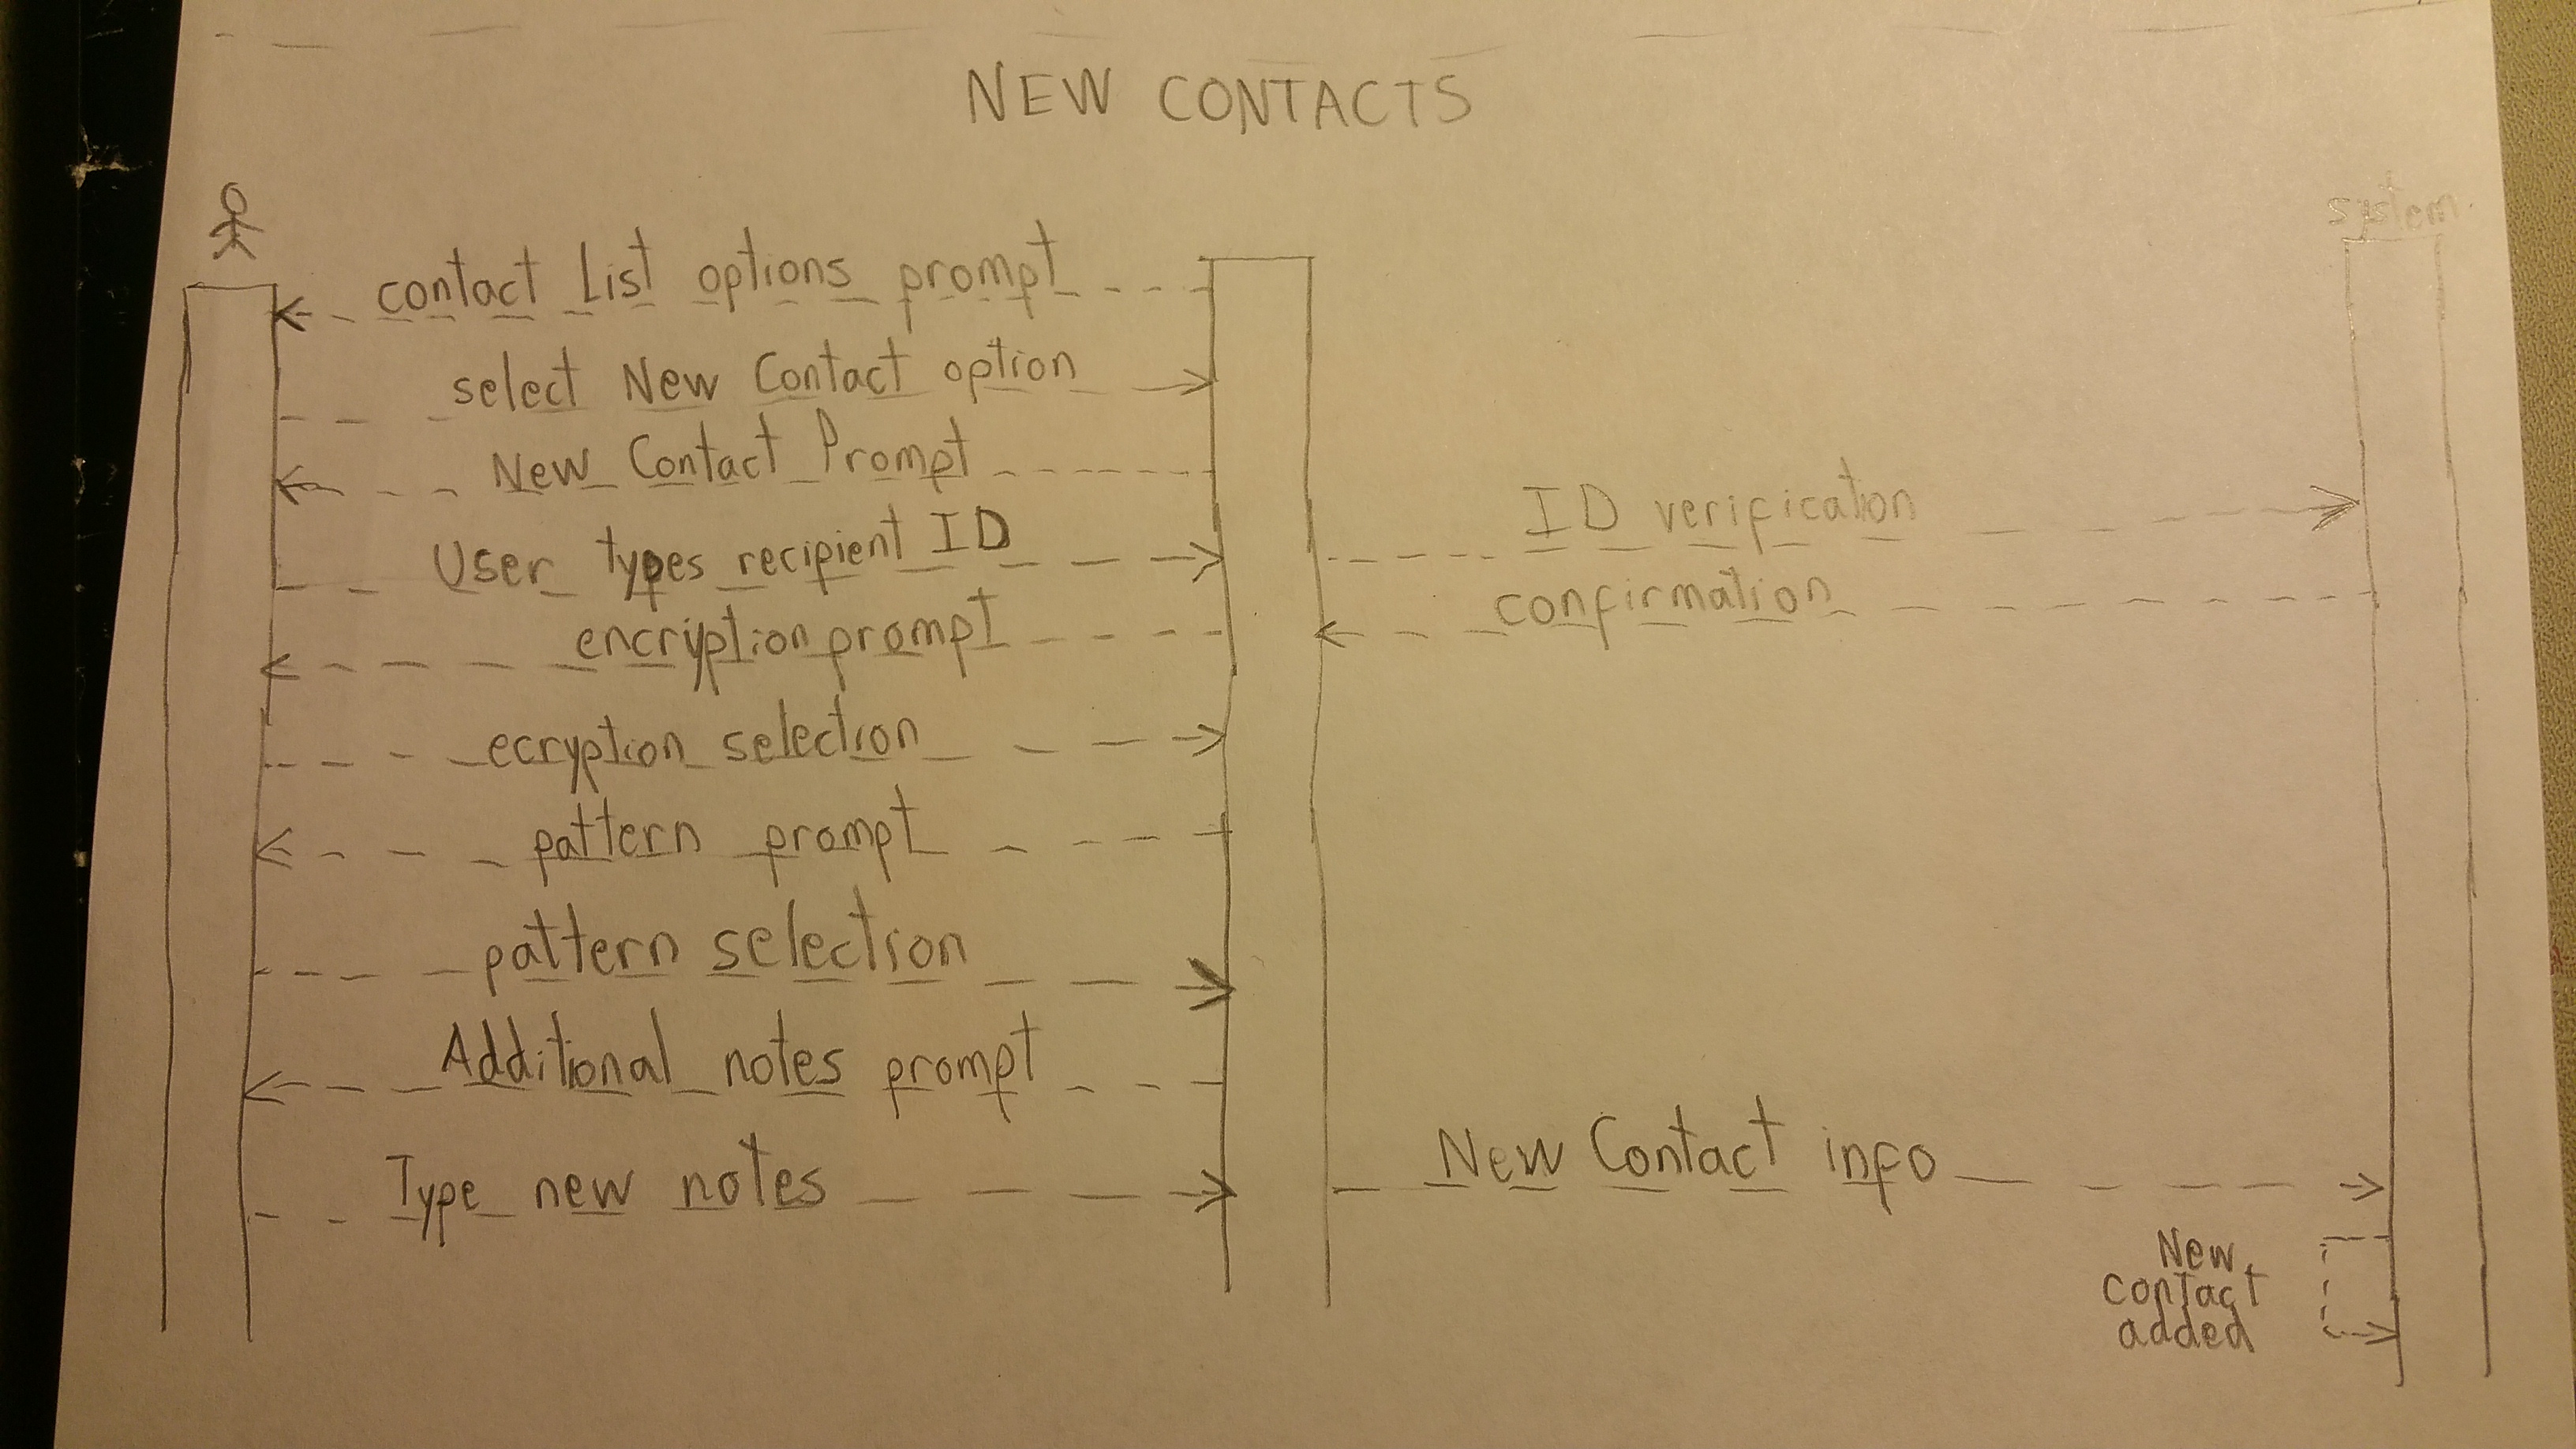 NEW CONTACTS
system
contact List options prompt
select New Contact option
New Contact Prompt
User types recipient ID
ID verification
confirmation
encryption prompt
ecryption selection
pattern prompt
pattern selection
Additional notes prompt
Type new notes
New Contact info
New
contact
added